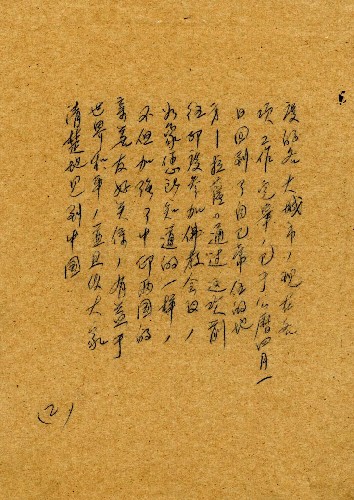 度的各大城市，现在各
项工作完毕，已于公曆四月一
日回到了自己常住的地
方—拉薩。通过这次前
往印度参加佛教会议，
如象您所知道的一样，
不但加强了中印两國的
亲爱友好关係，有益于
世界和平，並且使大家
清楚地见到中國
(2)